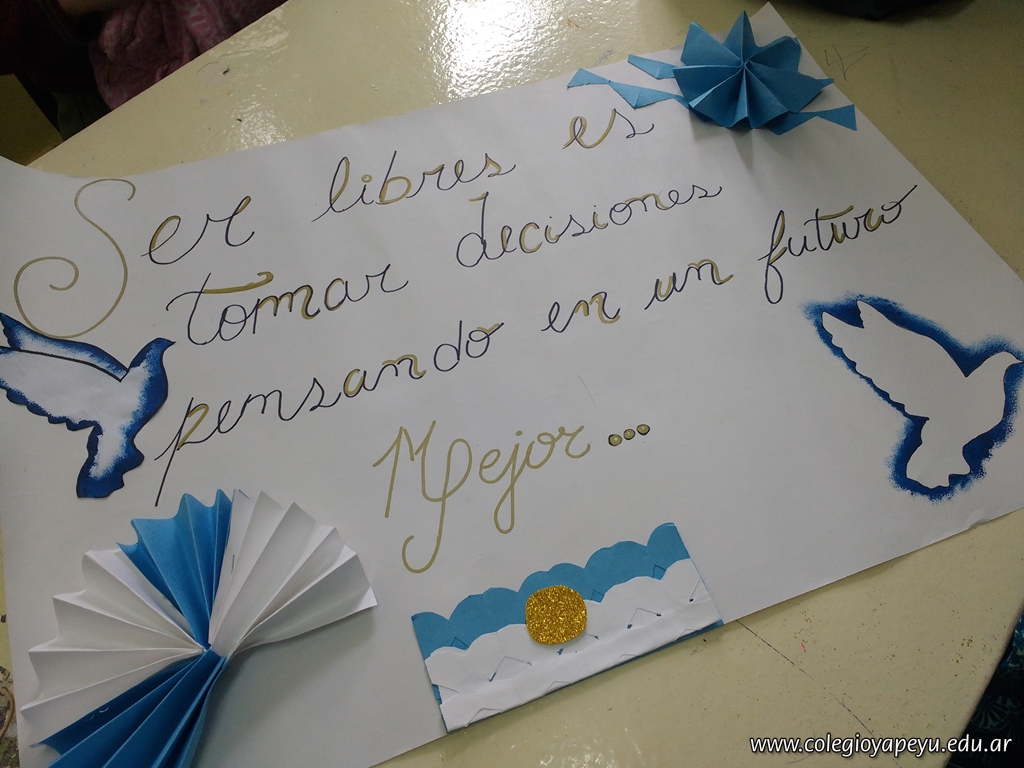 Ser libres es
tomar decisiones
pensando en un futuro
Mejor...
www.colegioyapeyu.edu.ar